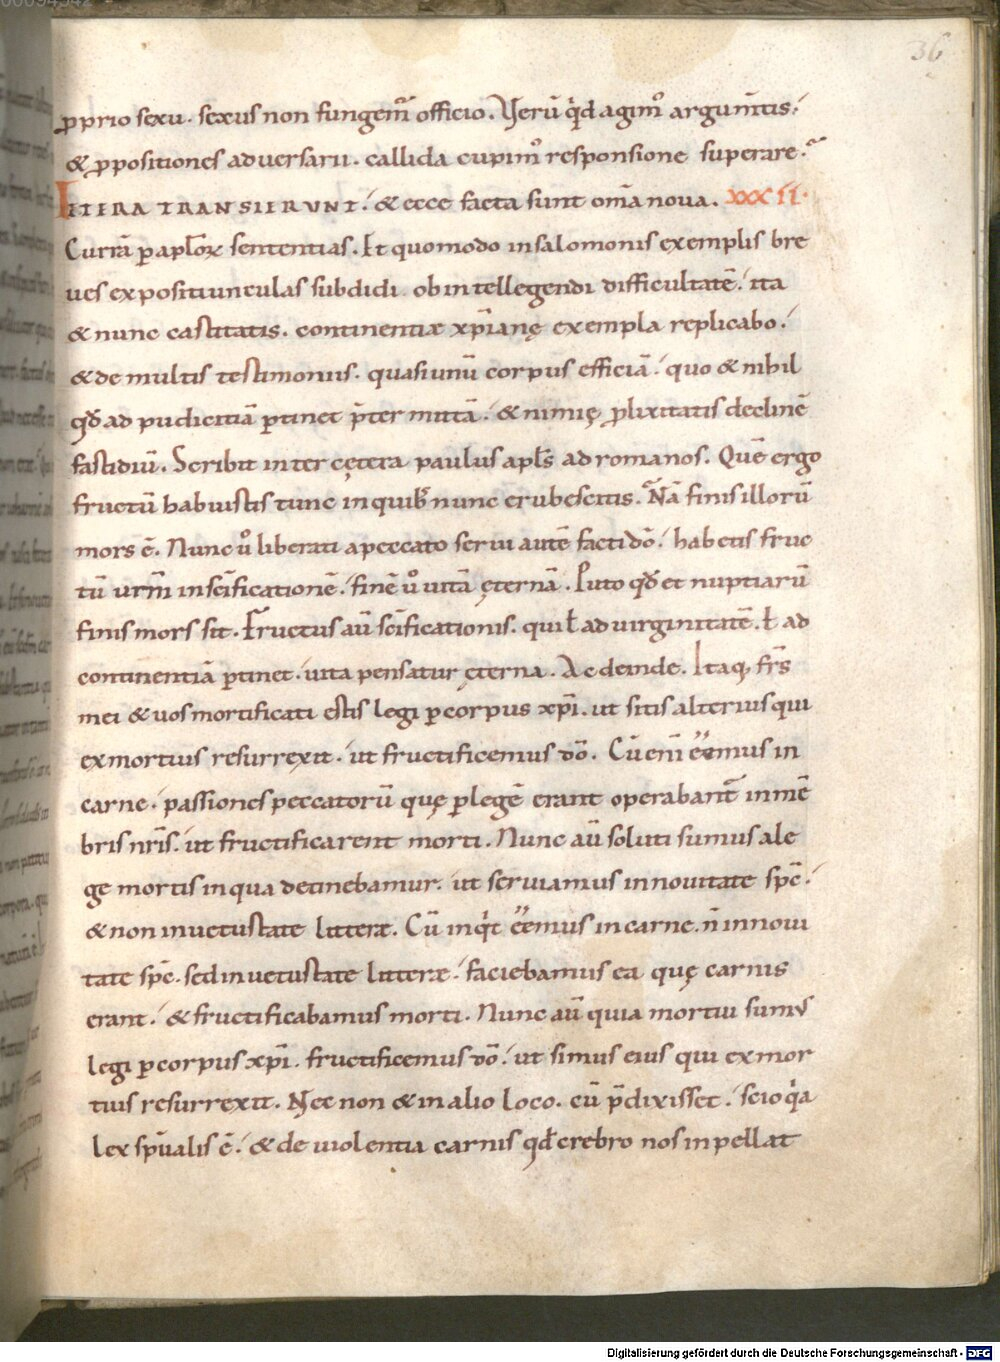 36
ꝓprio sexu. sexus non fungem̄ officio. Verū qͥd agimꝰ argum̄tis.
& ꝓpositiones adversarii. callida cupimꝰ responsione superare.
VETERA TRANSIERUNT. & ecce facta sunt om̄a nova. XXXII.
Currā ꝑ aploꝝ sententias. Et quomodo in salomonis exemplis bre
ves expositiunculas subdidi. ob intellegendi difficultatē. ita
& nunc castitatis. continentiæ xp̄ianę exempla replicabo.
& de multis testimoniis. quasi unū corpus efficiā. quo & nihil
qđ ad pudicitiā ꝑtinet p̄termittā. & nimię ꝓlixitatis declinē
fastidiū. Scribit inter cętera paulus apl̄s ad romanos. Quē ergo
fructū habuistis tunc in quibꝰ nunc erubescitis. Nā finis illorū
mors ē. Nunc ůo liberati a peccato servi autē facti dō. habetis fruc
tū ur̄m in sc̄ificationē. finē ůo uitā ęternā. Puto qđ et nuptiarū
finis mors sit. Fructus aū sc̄ificationis. qui ł ad uirginitatē. ł ad
continentiā ꝑtinet. uita pensatur ęterna. Ac deinde. Itaq; fr̄s
mei & uos mortificati estis legi ꝑ corpus xp̄i. ut sitis alterius qui
ex mortuis resurrexit. ut fructificemus dō. Cū eni̅ eēmus in
carne. passiones peccatorū quę ꝑ legē erant operabant̄ in mē
bris nr̄is. ut fructificarent morti. Nunc aū soluti sumus a le
ge mortis in qua detinebamur. ut serviamus in novitate sp̄c.
& non in uetustate litteræ. Cū inqͥt eēmus in carne. n̄ in novi
tate sp̄c. sed in uetustate litteræ. faciebamus ea quę carnis
erant. & fructificabamus morti. Nunc aū quia mortui sumus
legi ꝑ corpus xp̄i. fructificemus dō. ut simus eius qui ex mor
tuis resurrexit. Nec non & in alio loco. cū p̄dixisset. scio qͥa
lex sp̄ualis ē. & de uiolentia carnis qđ crebro nos inpellat
Digitalisierung gefördert durch die Deutsche Forschungsgemeinschaft - DFG